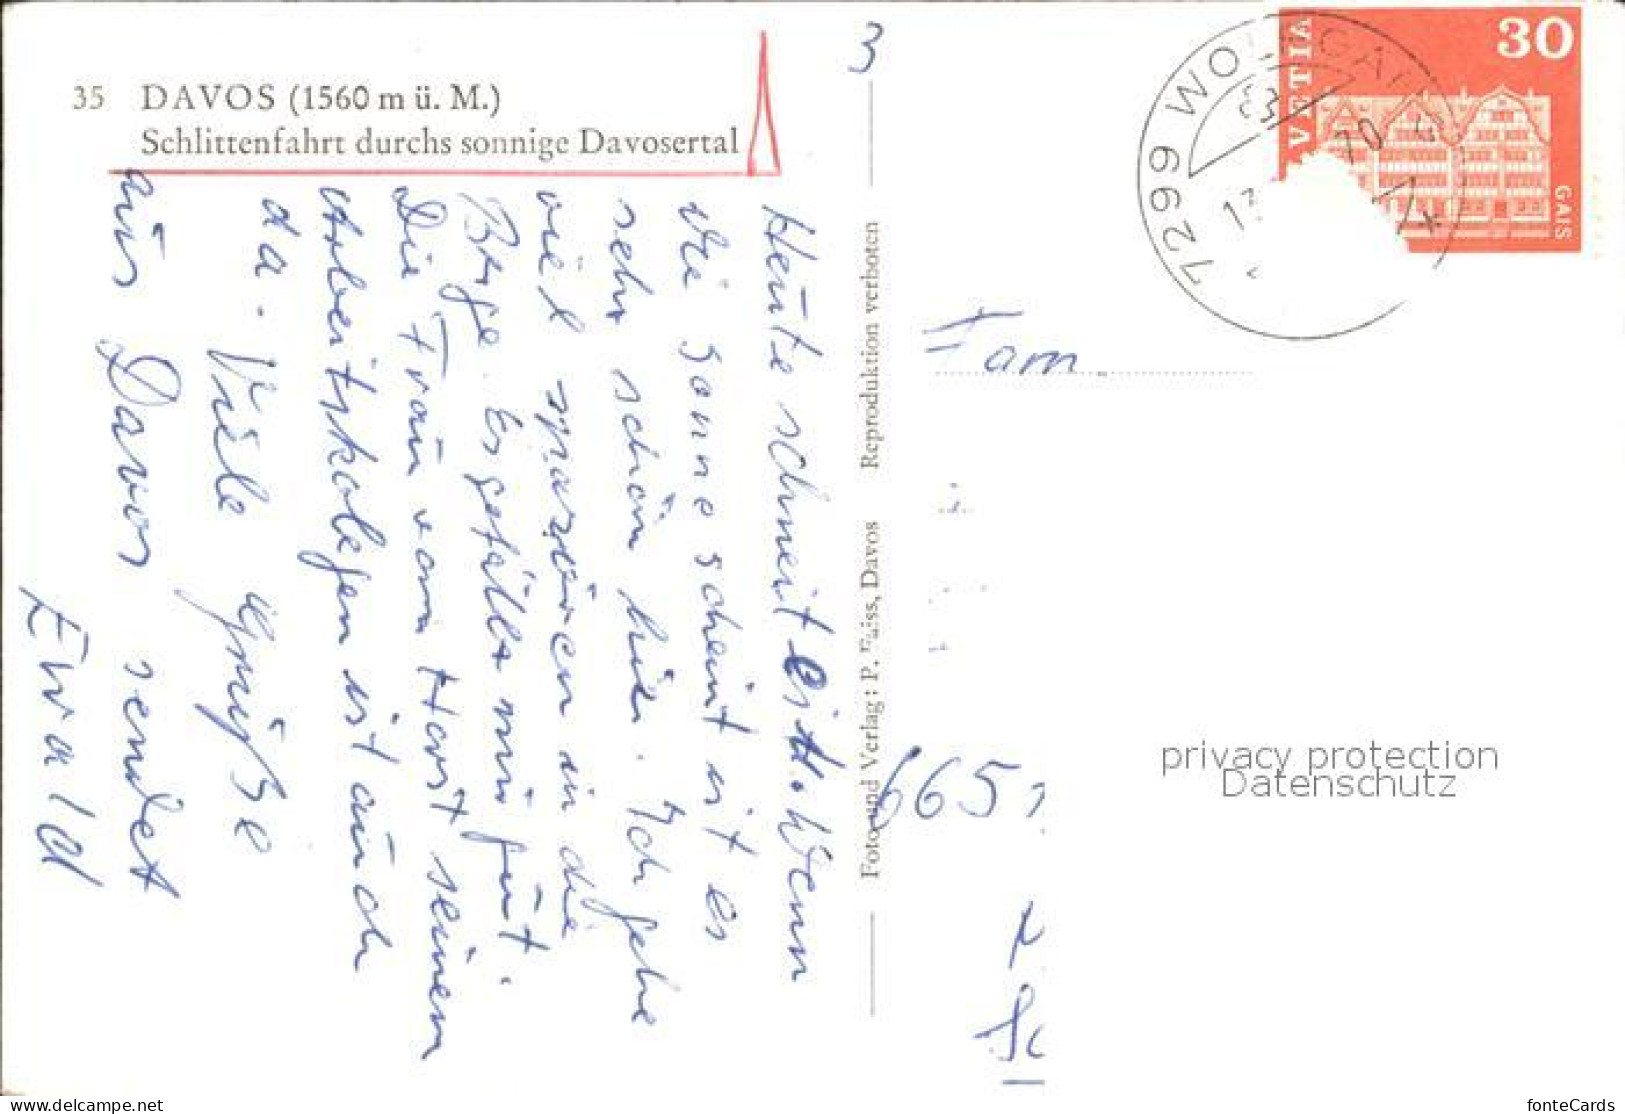 35 DAVOS (1560 m ü. M.)
Schlittenfahrt durchs sonnige Davosertal
Heute schneit es . Wenn
die Sonne scheint ist es
sehr schön hier. Ich gehe
viel spazieren in die
Berge. Es gefällt mir gut.
Die Frau vom Horst seinem
Arbeitskolegen ist auch
da. Viele Grüße
aus Davos sendet
Ewald
Reproduktion verboten
Foto und Verlag: P. , Davos
3
HELVETIA
30
GAIS
7299 WOLFGANG
Fam
665
privacy protection
Datenschutz
www.delcampe.net
fonteCards